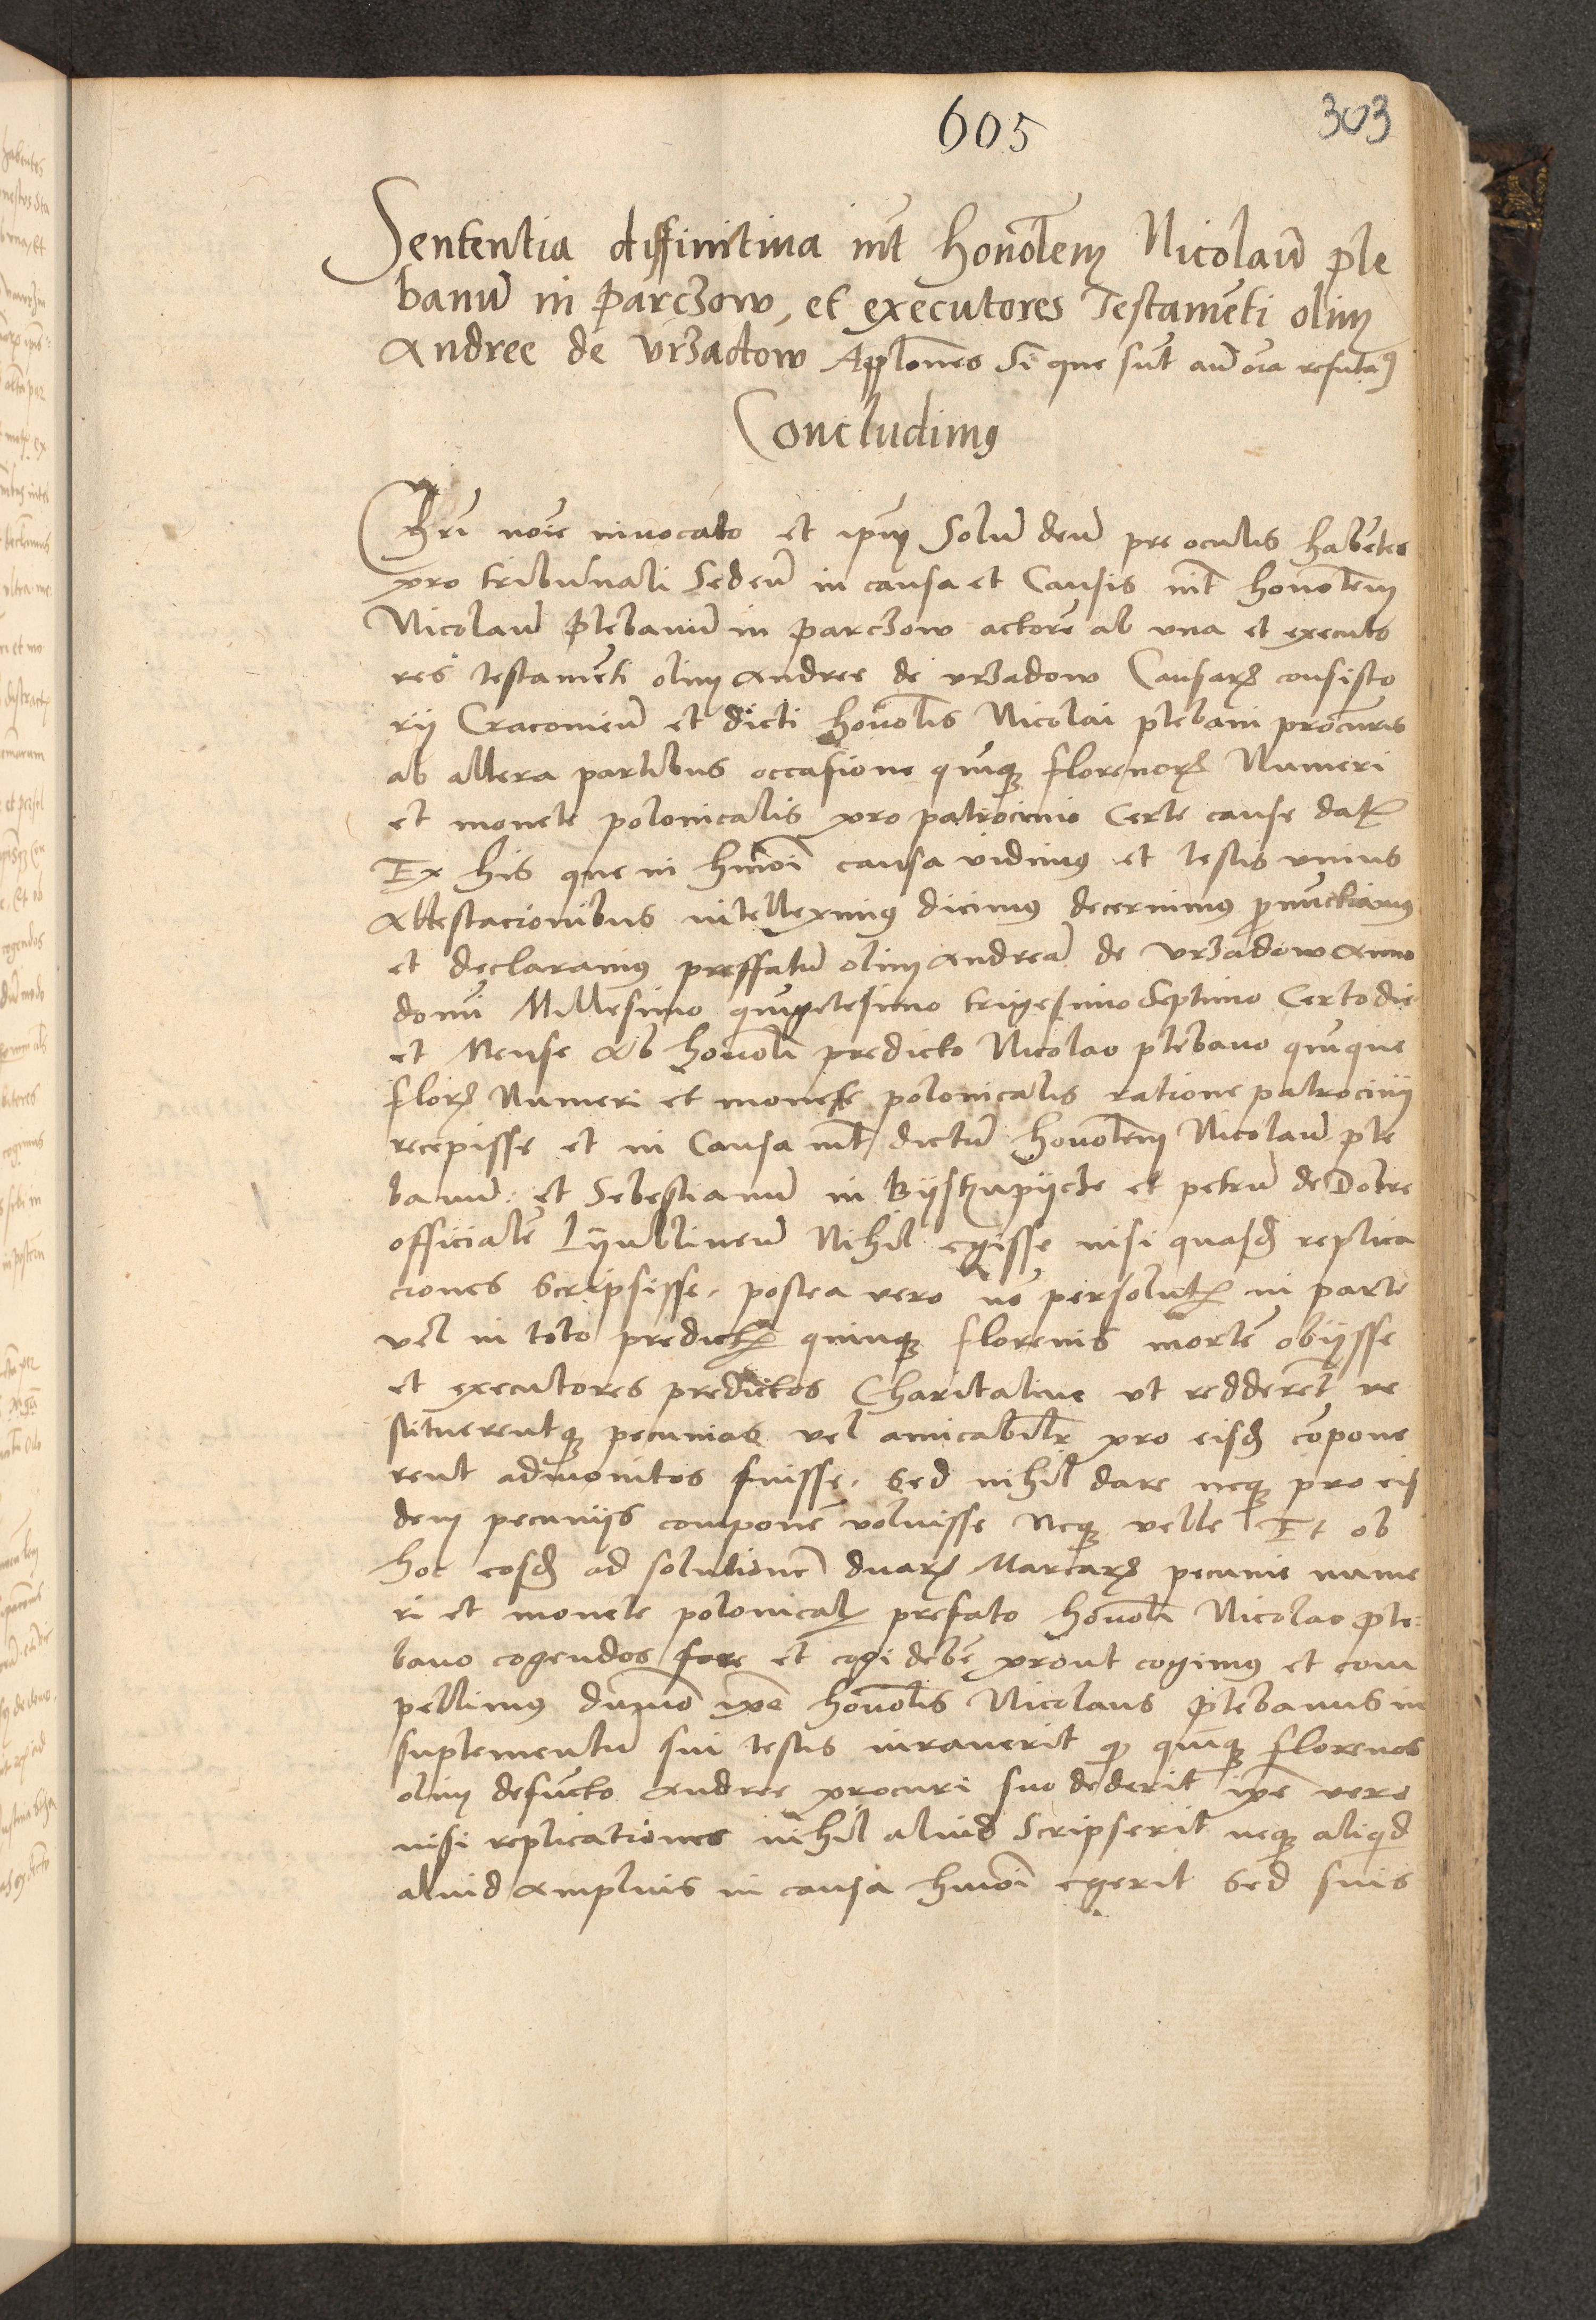 605
303
Sententia diffinitiva int̄ honolem Nicolaū ple
banū in Parczow, et executores Testamēti olim
Andree de Urzadow Applōnes Si que sūt aut oīa refuta
Concludimus
Chrī noīe invocato et ipm̄ Solū deū pre oculis habētes
pro tribunali Sedeñ in causa et Causis int̄ honolem
Nicolaū Plebanū in Parczow actorē ab una et executo
res testamēti olim Andree de Urzadow Causarꝫ consisto
rij Cracovieñ et dicti honolis Nicolai plebani procuris
ab altera partibus occasione quīqꝫ florenorꝫ Numeri
et monete polonicalis pro patrocinio Certe cause datꝭ
Ex his que in hmōi causa vidimus et testis unius
Attestacionibus intelleximus dicimus decernimus pronūctiamus
et declaramus preffatū olim Andreā de Urzadow Anno
domī Millesimo quīgētesimo trigesimo Septimo Certo die
et Mense Ab honoli predicto Nicolao plebano quīque
florꝫ Numeri et monete polonicalis ratione patrocinij
recepisse et in Causa int̄ dictū honolem Nicolaū ple
banū et Sebestianū in Bijstzupijcze et petrū de Dobre
officialē Lijublineñ Nihil egisse nisi quasd̄ replica
ciones Scripsisse, postea vero nō persolutꝭ in parte
vel in toto predictꝭ quinqꝫ florenis mortē obijsse
et executores predictos Charitative ut redderēt re
stituerentqꝫ pecunias vel amicabilr̄ pro eisd̄ cōpone
rent admonitos fuisse. Sed nihil dare neqꝫ pro eis
dem pecunijs componē voluisse Neqꝫ velle Et ob
hoc eosd̄ ad solutionē duarꝫ Marcarꝫ pecunie nume
ri et monete polonicalꝭ prefato honoli Nicolao Ple
bano cogendos fore et cogi debē prout cogimus et com
pellimus dūmō ipe honolis Nicolaus Plebanus in
suplementū sui testis iuraverit qꝫ quīqꝫ florenos
olim defūcto Andree procuri suo dederit ipe vero
nisi replicationes nihil aliud Scripserit neqꝫ aliqid
aliud Amplius in causa hmōi egerit Sed suis